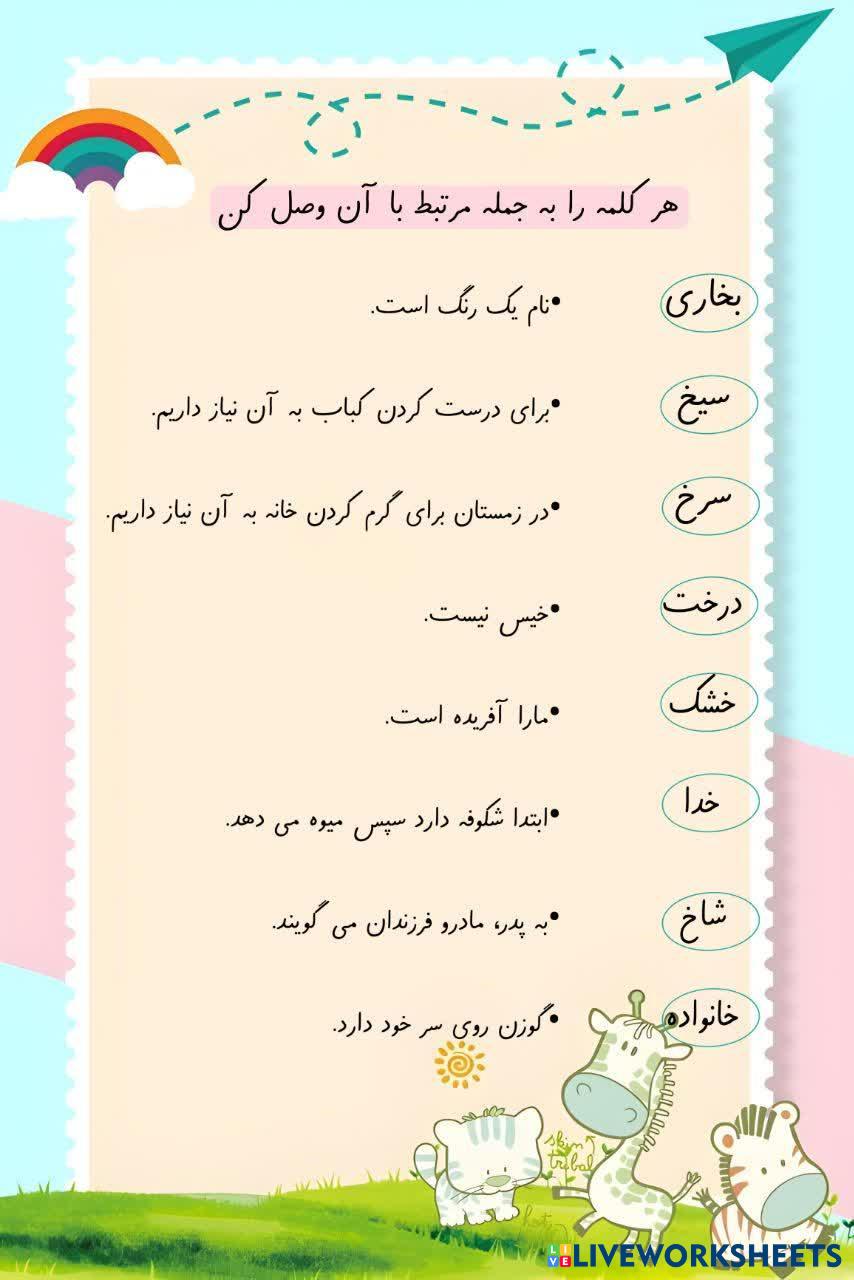 هر کلمه را به جمله مرتبط با آن وصل کن
بخاری
•نام یک رنگ است.
سیخ
•برای درست کردن کباب به آن نیاز داریم.
سرخ
•در زمستان برای گرم کردن خانه به آن نیاز داریم.
درخت
•خیس نیست.
خشک
•مارا آفریده است.
خدا
•ابتدا شکوفه دارد سپس میوه می دهد.
شاخ
•به پدر، مادرو فرزندان می گویند.
خانواده
•گوزن روی سر خود دارد.
skin
tribal
LIVEWORKSHEETS